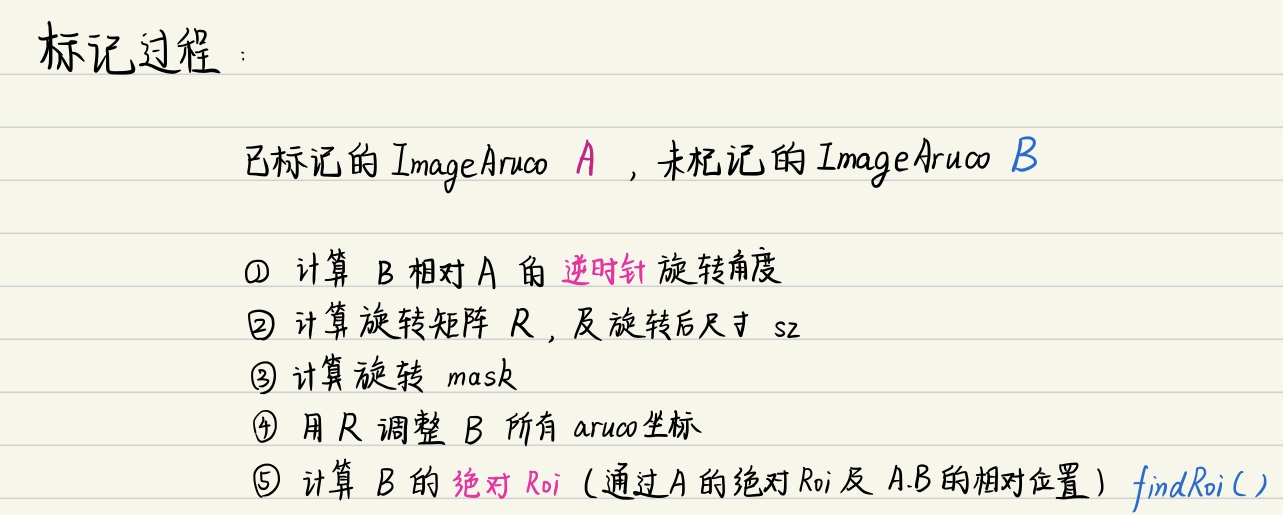 标记过程：
已标记的 ImageAruco A ，未标记的 ImageAruco B
① 计算 B 相对 A 的 逆时针 旋转角度
② 计算旋转矩阵 R，及旋转后尺寸 sz
③ 计算旋转 mask
④ 用 R 调整 B 所有 aruco坐标
⑤ 计算 B 的 绝对 Roi (通过A的绝对Roi及 A.B的相对位置) findRoi()